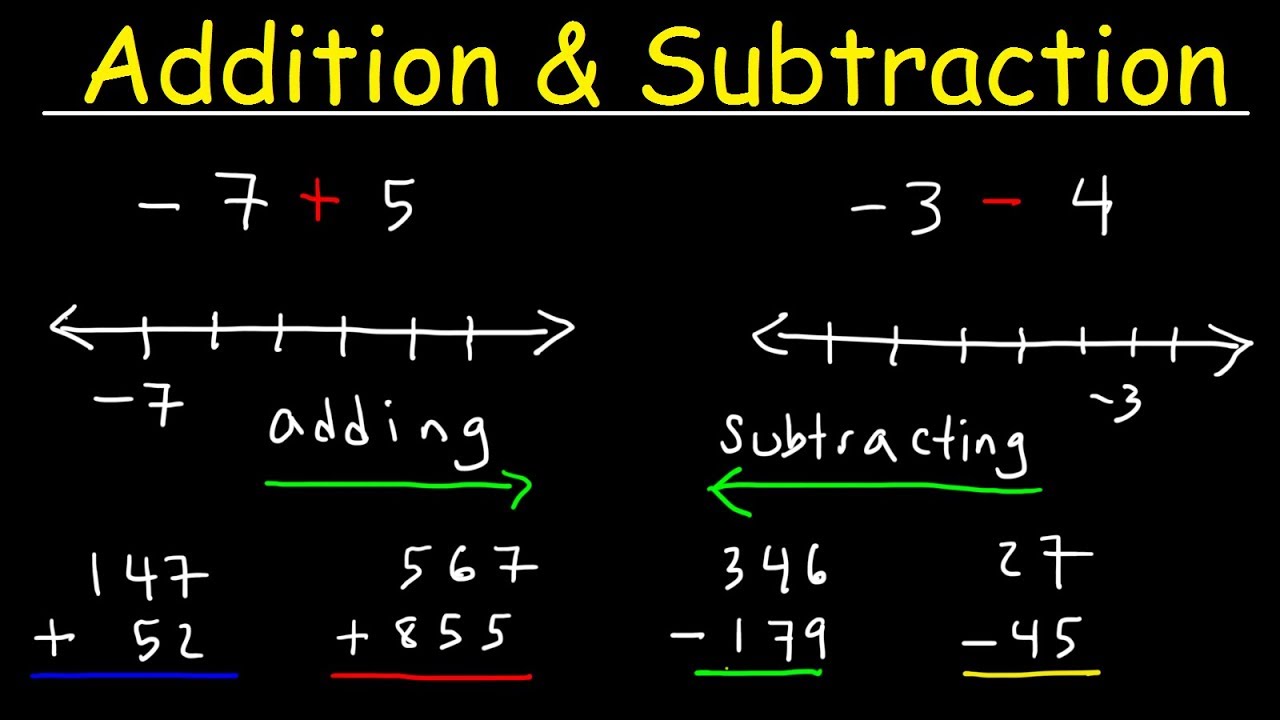 Addition & Subtraction
-7 + 5
-3 - 4
-7
-3
adding
subtracting
147
+ 52
567
+ 855
346
- 179
27
- 45